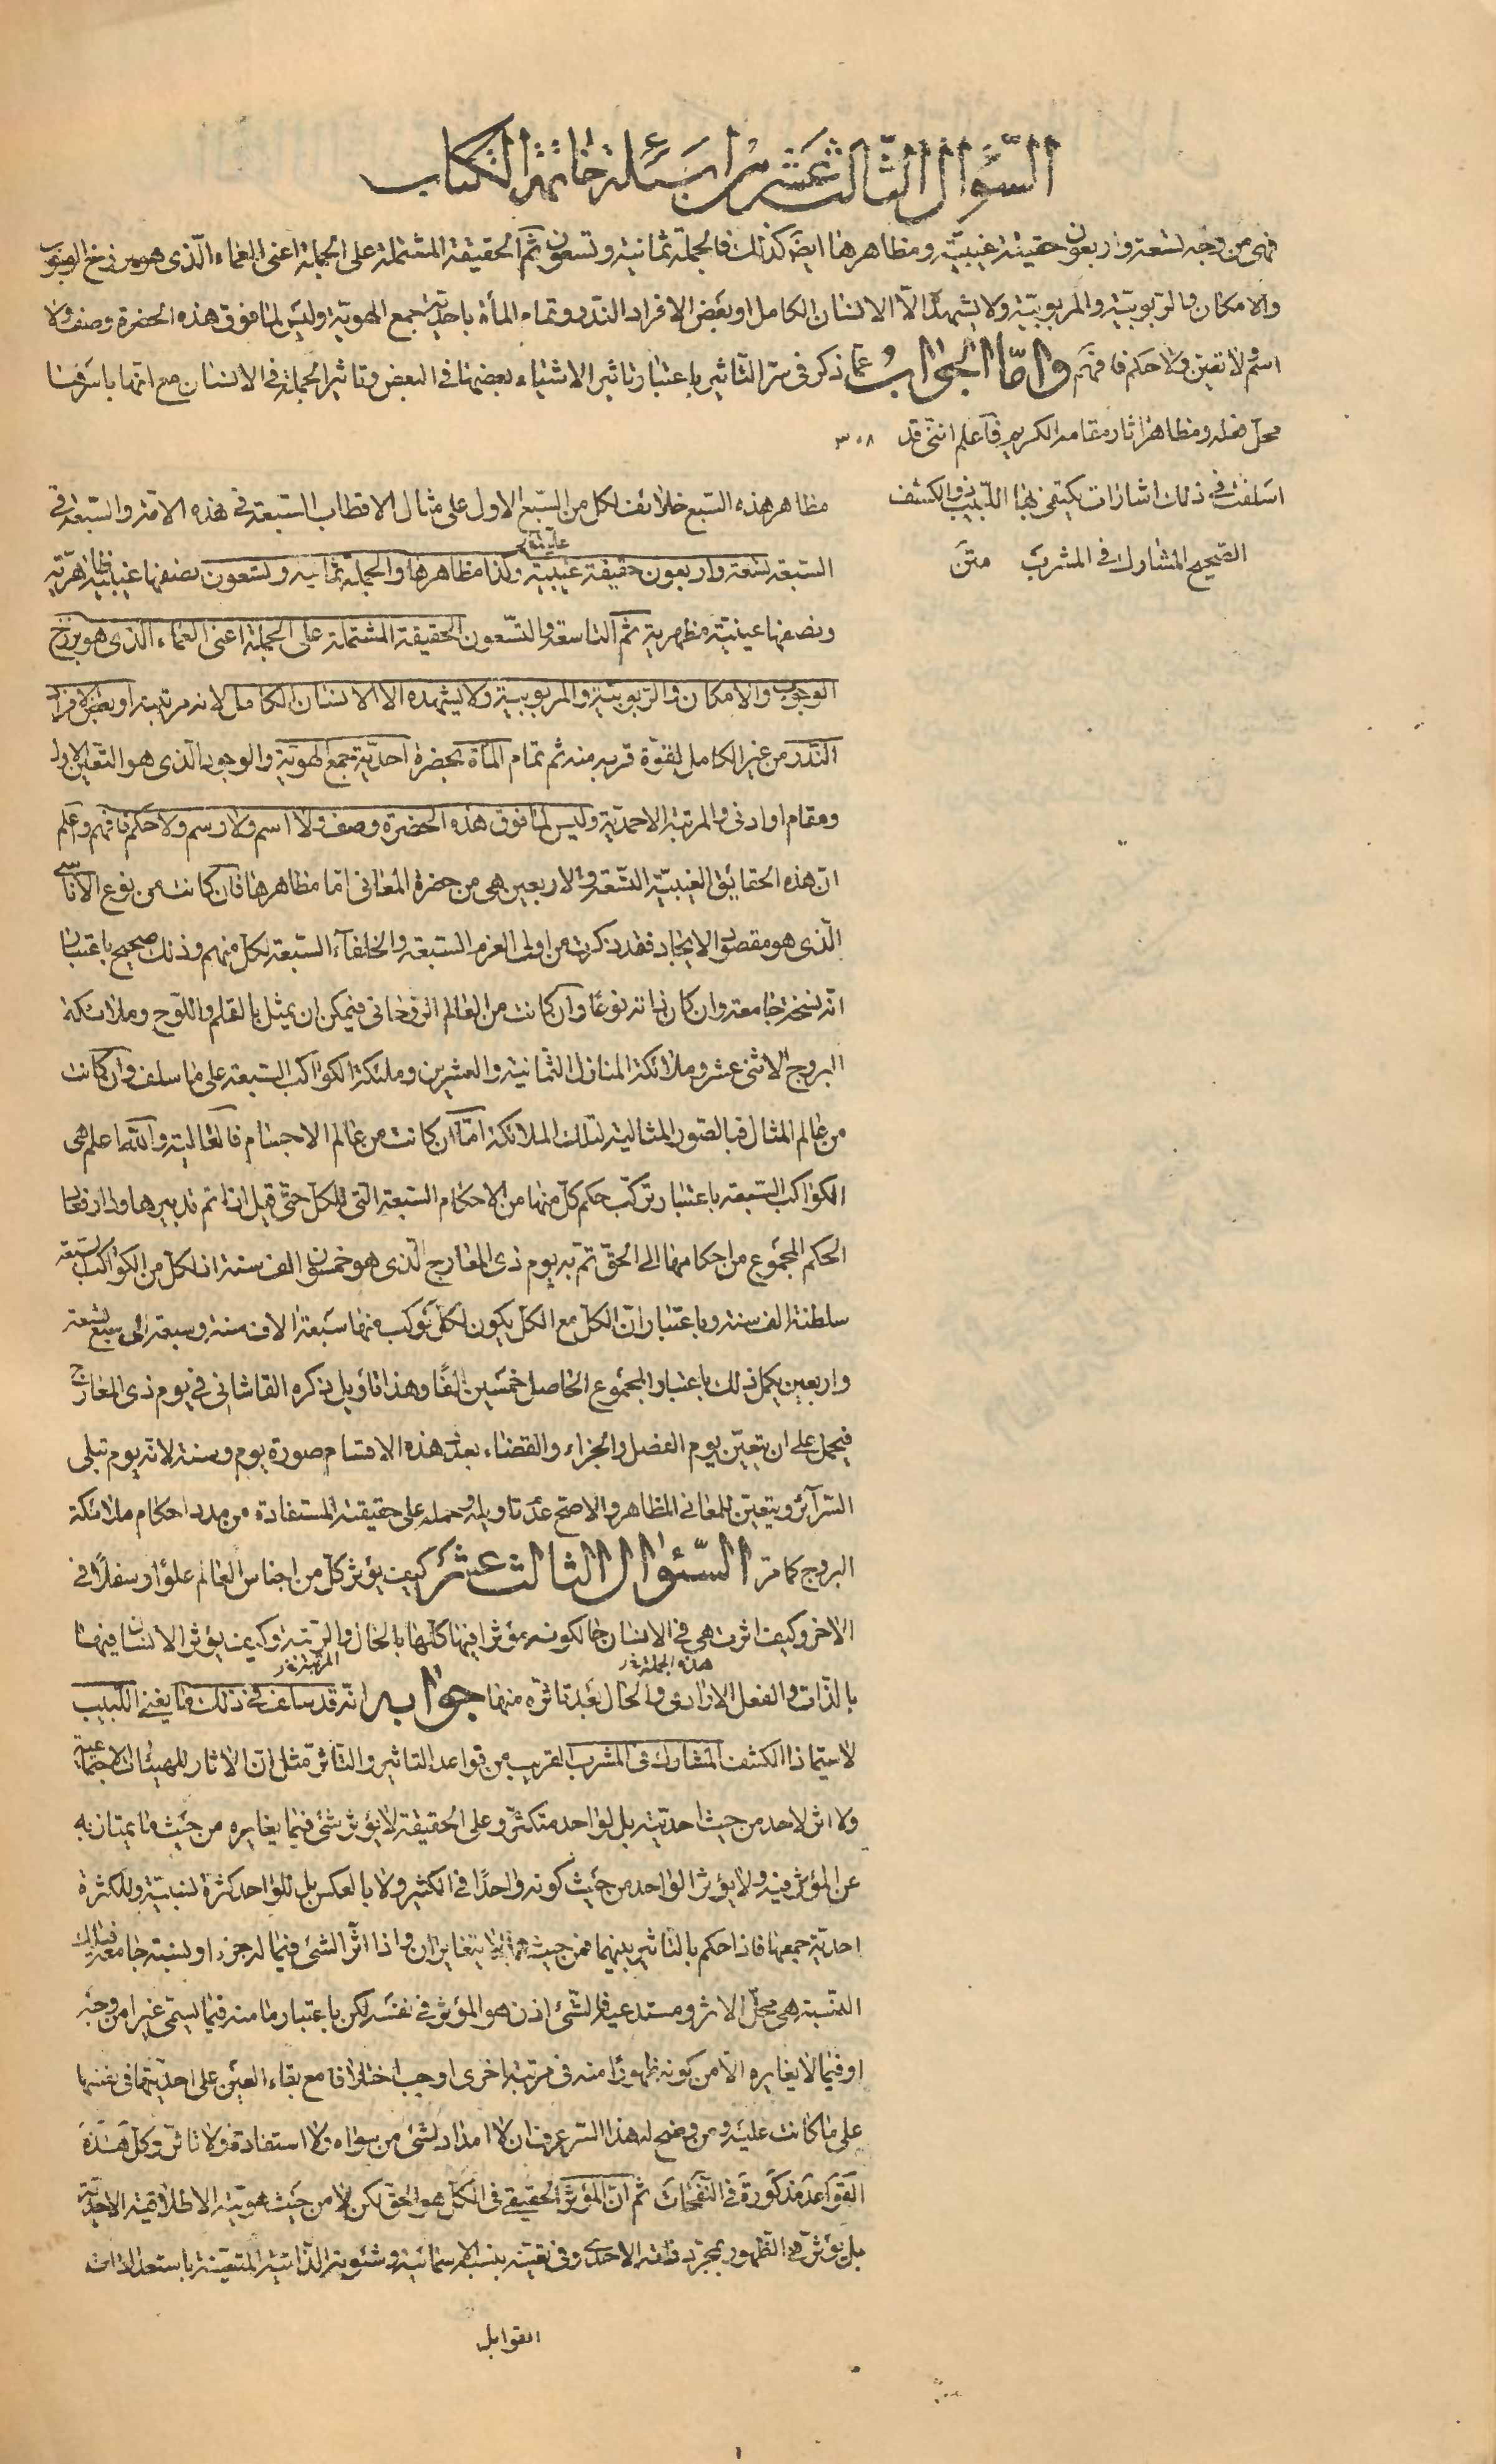 السّؤال الثّالث عشر من اسئلة خاتمة الكتاب
فهى من وجه تسعة واربعون حقيقة غيبيّة ومظاهرها ايضا كذلك فالجملة ثمانية وتسعون ثم الحقيقة المشتملة على الجملة اعنى العماء الّذى هو برزخ الوجوب
والامكان والرّبوبيّة والمربوبيّة ولا يشهدها الّا الانسان الكامل او بعض الافراد النّدر وتمام المأة باحديّة جمع الهويّة وليس لما فوق هذه الحضرة وصف ولا
اسم ولا تعين ولا حكم فافهم وامّا الجواب عمّا ذكر فى سرّ التّأثير باعتبار تاثير الاشياء بعضها فى البعض وتاثير الجملة فى الانسان مع انّها باسرها
محلّ فعله ومظاهر اثار مقامه الكريم فاعلم انّنى قد ٣٥٨
اسلفت فى ذلك اشارات يكتفى بها اللّبيب ذو الكشف
الصّحيح المشارك فى المشرب متن
مظاهر هذه السّبع خلائف لكل من السّبع الاول على مثال الاقطاب السّبعة فى هذه الامّة والسّبعة فى
السّبعة تسعة واربعون حقيقة غيبيّة وكذا مظاهرها والجملة ثمانية وتسعون نصفها غيبيّة ظاهريّة
ونصفها عينيّة مظهرية ثم التاسعة والتّسعون الحقيقة المشتملة على الجملة اعنى العماء الذى هو برزخ
الوجوب والامكان والرّبوبيّة والمربوبيّة ولا يشهده الا الانسان الكامل لانه مرتبته او بعض الافراد
النّدر من غير الكامل لقوّة قربه منه ثم تمام المأة بحضرة احديّة جمع الهويّة والوجود الّذى هو التّعين الاول
ومقام او ادنى والمرتبة الاحمديّة وليس لما فوق هذه الحضرة وصف ولا اسم ولا رسم ولا حكم فافهم واعلم
انّ هذه الحقايق الغيبيّة التّسعة والاربعين هى من حضرة المعانى امّا مظاهرها فان كانت من نوع الاناسى
الّذى هو مقصود الايجاد فقد ذكرت من اولى العزم السّبعة والخلفآء السّبعة لكل منهم وذلك صحيح باعتبار
انّه نسخة جامعة وان كان ذاته نوعًا وان كانت من العالم الرّوحانى فيمكن ان يمثل بالقلم واللّوح وملائكة
البروج الاثنى عشر وملائكة المنازل الثّمانية والعشرين وملئكة الكواكب السّبعة على ما سلف وان كانت
من عالم المثال فبالصّور المثالية لتلك الملائكة امّا ان كانت من عالم الاجسام فالغالبة والله اعلم هى
الكواكب السّبعة باعتبار تركّب حكم كلّ منها من الاحكام السّبعة الّتى للكل حتّى قيل اذا تم تدبيرها وادوارها
الحكم المجموع من احكامها الى الحقّ تمّ به يوم ذى المعارج الّذى هو خمسون الف سنة اذ لكل من الكواكب السّبعة
سلطنة الف سنة وباعتبار انّ الكلّ مع الكل يكون لكلّ كوكب منها سبعة الاف سنة وسبعة فى سبع تسعة
واربعين يكمل ذلك باعتبار المجموع الحاصل خمسين الفًا وهذا تاويل يذكره القاشانى فى يوم ذى المعارج
فيحمل على ان يتعيّن يوم الفصل والجزاء والقضاء بعد هذه الاقسام صورة يوم وسنة لانه يوم تبلى
السّرآئر ويتعيّن للمعانى المظاهر والاصحّ عدم تاويله وحمله على حقيقته المستفادة من مدد احكام ملائكة
البروج كما مرّ السّئوال الثالث عشر كيف يؤثر كلّ من اجناس العالم علوًا وسفلًا فى
الاخر وكيف اثرت هى فى الانسان حالكونه مؤثرا فيها كلّها بالحال والرّتبة وكيف يؤثر الانسان فيها
بالذّات والفعل الارادى والحال بعد تاثّره منها جوابه انّه قد سلف فى ذلك ما يغنى اللّبيب
لاسيّما ذا الكشف المشارك فى المشرب القريب من قواعد التاثير والتّاثّر مثل انّ الاثار للهيئات الاجتماعية
ولا اثر لاحد من حيث احديّته بل لواحد متكثّر وعلى الحقيقة لا يؤثر شئ فيما يغايره من حيث ما يمتاز به
عن المؤثر فيه ولا يؤثر الواحد من حيث كونه واحدًا فى الكثير ولا بالعكس بل للواحد كثرة نسبيّة وللكثرة
احديّة جمعها فاذا حكم بالتّاثير بينهما فمن حيث لا يتغايران واذا اثّر الشئ فيما له جزء او نسبة جامعة فتلك
النّسبة هى محلّ الاثر ومستدعية فالشّئ اذن هو المؤثر فى نفسه لكن باعتبار ما منه فيما يسمّى غيرا من وجه
او فيما لا يغايره الّا من كونه ظهورا منه فى مرتبة اخرى اوجب اختلافا مع بقاء العين على احديّتها فى نفسها
على ما كانت عليه ومن وضح له هذا السّر عرف ان لا امداد لشئ من سواه ولا استفادة ولا تاثّر وكلّ هذه
القواعد مذكورة فى النّفحات ثم انّ المؤثّر الحقيقى فى الكلّ هو الحق لكن لا من حيث هويّته الاطلاقيّة الاحديّة
بل يؤثر فى الظّهور بمجرّد ذاته الاحدى وفى تعيّنه بنسبه الاسمائية وشئونه الذّاتية المتعيّنة باستعدادات
القوابل